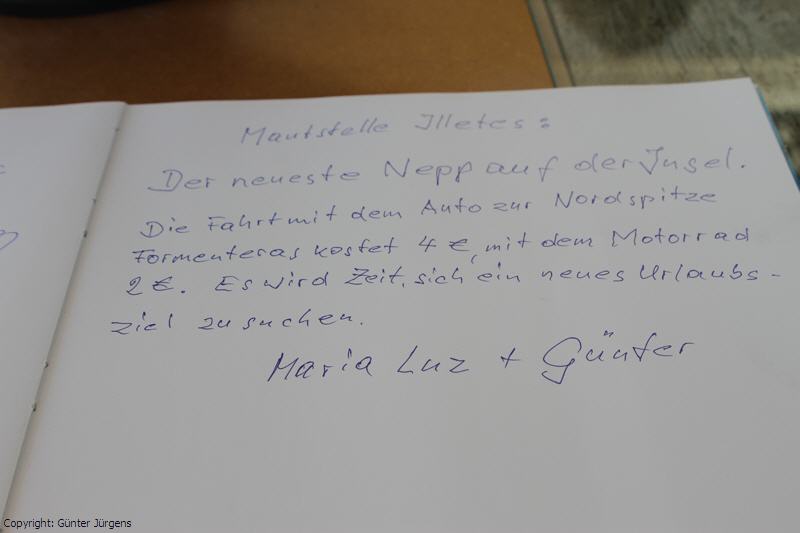 Mautstelle Illetes:
Der neueste Nepp auf der Insel.
Die Fahrt mit dem Auto zur Nordspitze
Formenteras kostet 4 €, mit dem Motorrad
2 €. Es wird Zeit, sich ein neues Urlaubs-
ziel zu suchen.
Maria Luz + Günter
Copyright: Günter Jürgens